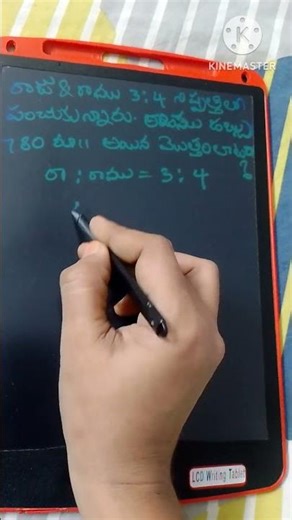 KINEMASTER
రాజు & రాము 3:4 నిష్పత్తిలో
పంచుకున్నారు. రాము డబ్బు
780 రూ॥ అయిన మొత్తం
?
రా : రాము = 3 : 4
LCD Writing Tablet